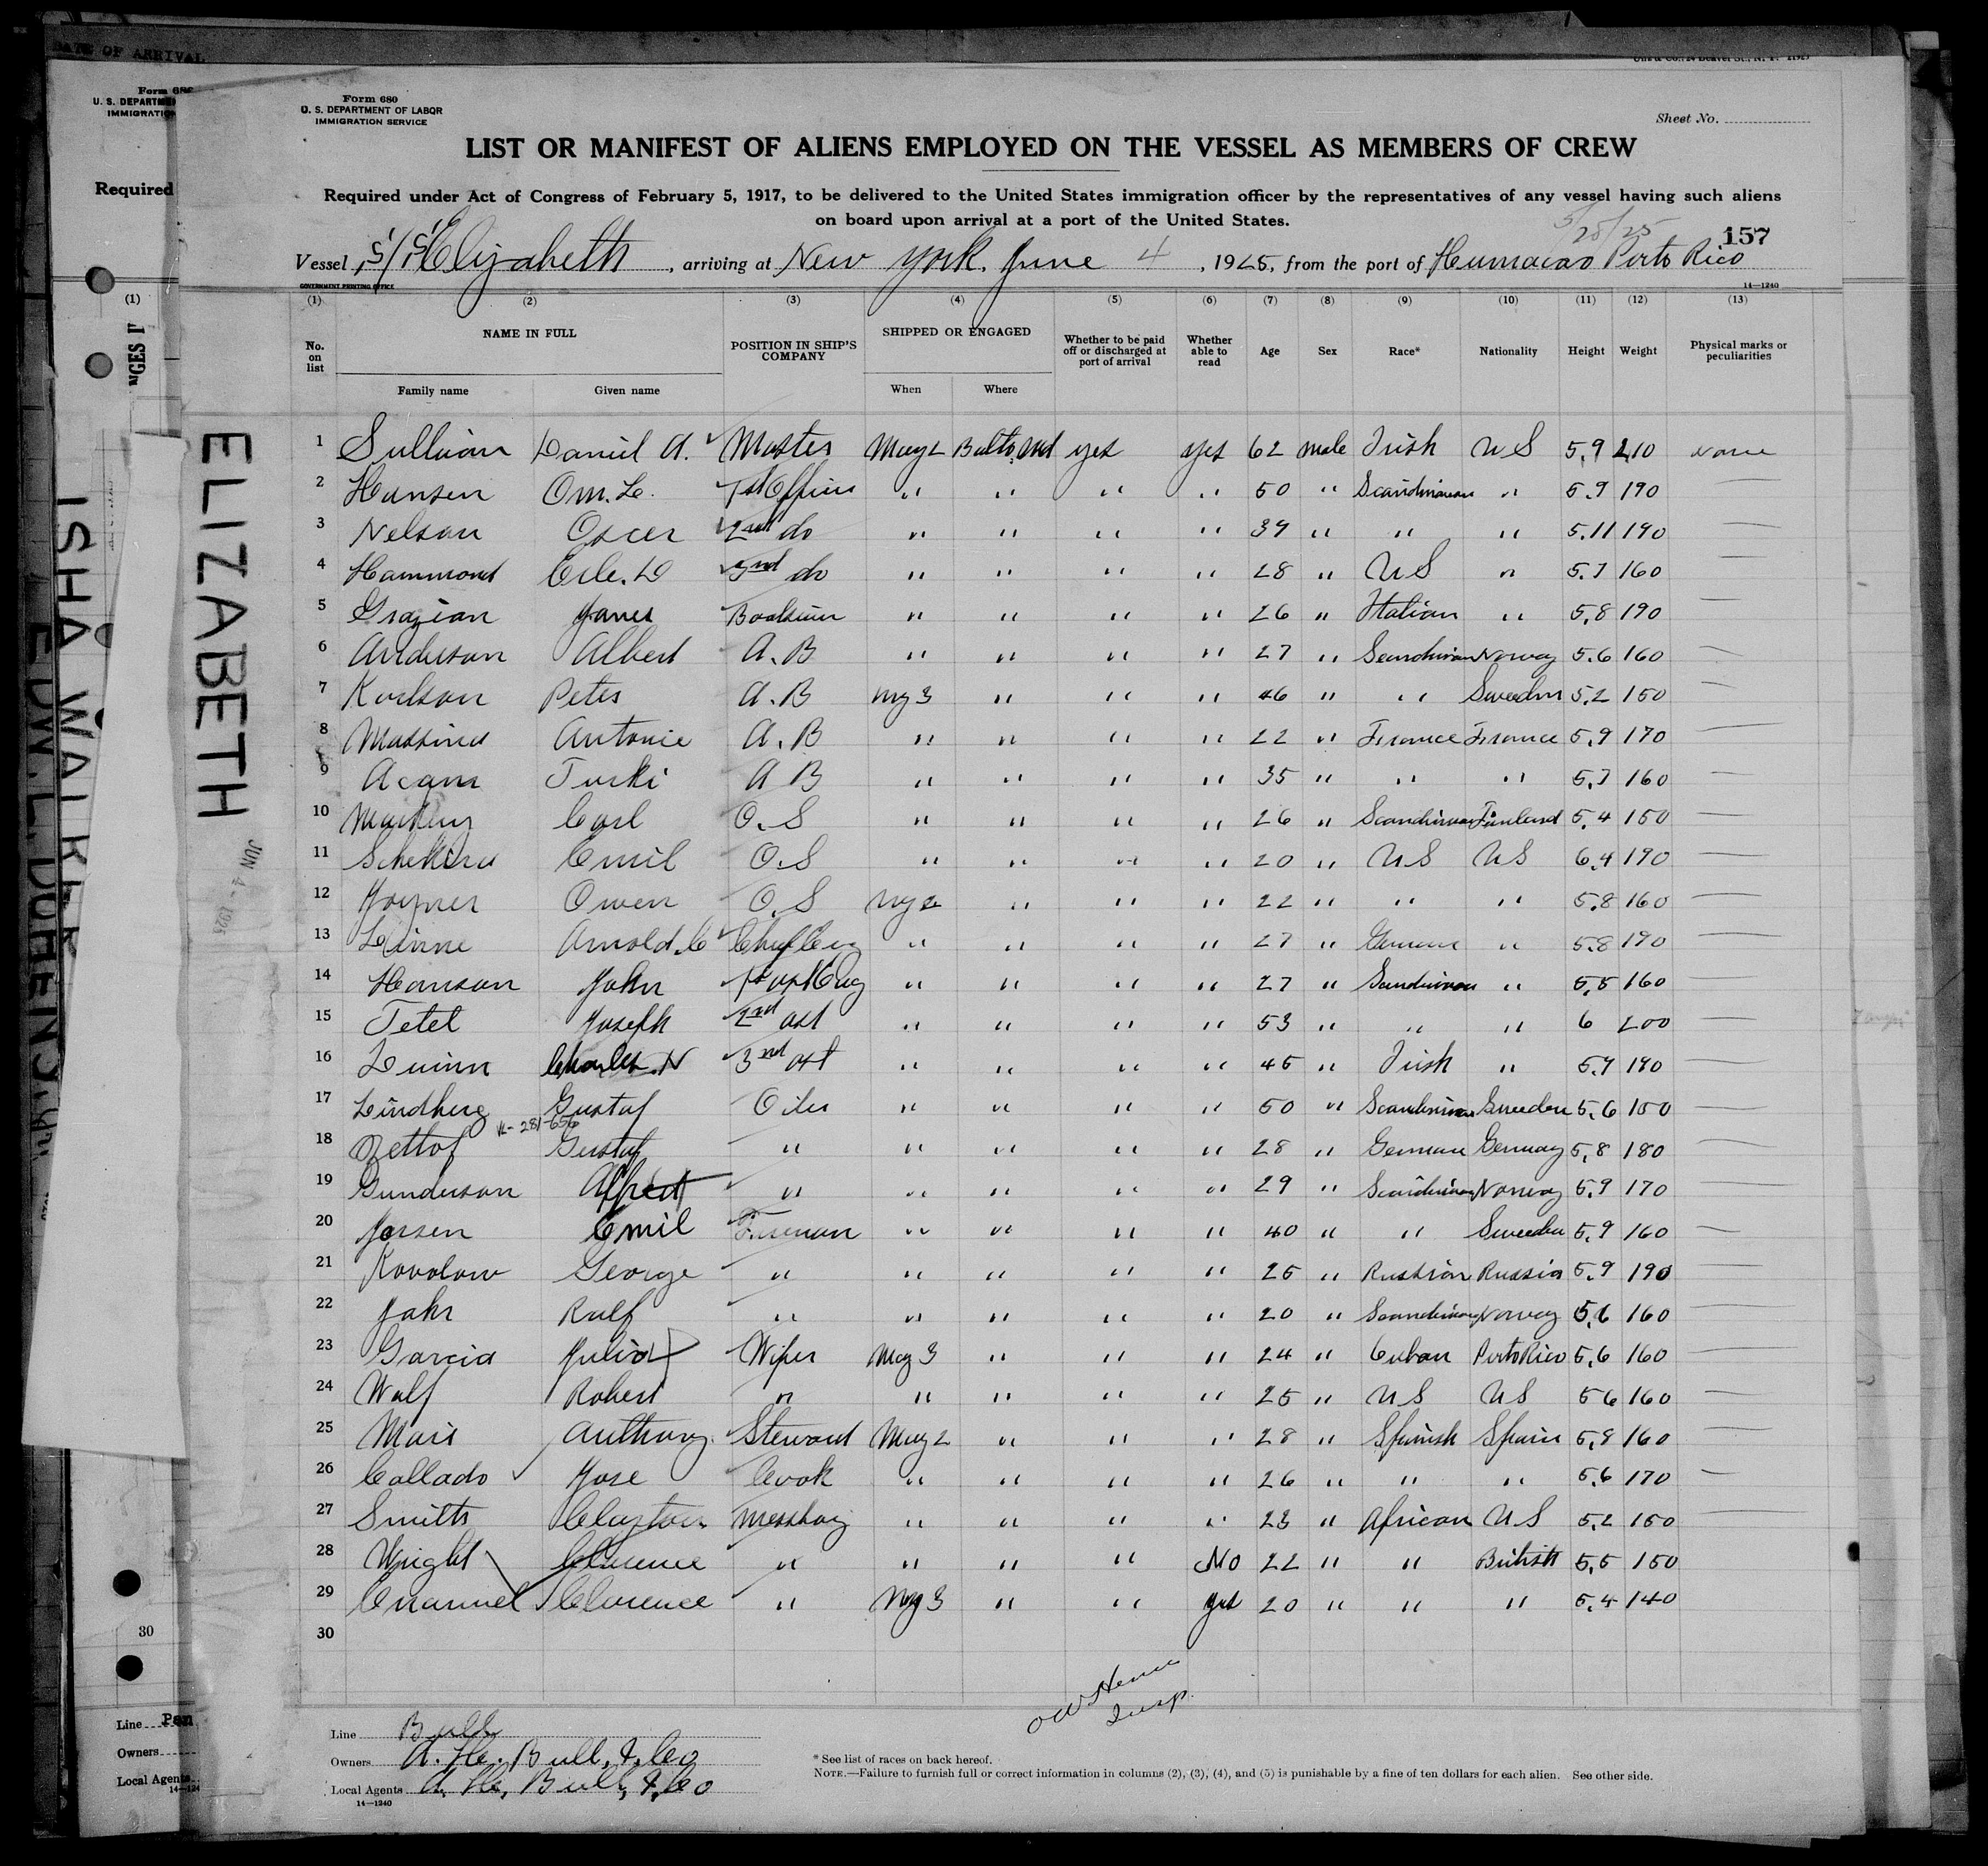 DATE OF ARRIVAL
Form 680
U. S. DEPARTMENT OF LABOR
IMMIGRATION SERVICE
Sheet No.
LIST OR MANIFEST OF ALIENS EMPLOYED ON THE VESSEL AS MEMBERS OF CREW
Required under Act of Congress of February 5, 1917, to be delivered to the United States immigration officer by the representatives of any vessel having such aliens
on board upon arrival at a port of the United States.
5/28/25
157
Vessel S/S Elizabeth, arriving at New York. June 4, 1925, from the port of Humacao Porto Rico
GOVERNMENT PRINTING OFFICE
14—1240
(1) (2) (3) (4) (5) (6) (7) (8) (9) (10) (11) (12) (13)
No. on list NAME IN FULL POSITION IN SHIP'S COMPANY SHIPPED OR ENGAGED Whether to be paid off or discharged at port of arrival Whether able to read Age Sex Race* Nationality Height Weight Physical marks or peculiarities
Family name Given name When Where
1 Sullivan Daniel A. Master May 2 Balto, Md yes yes 62 male Irish US 5.9 210 None
2 Hansen Om. L. 1st Officer " " " " 50 " Scandinavian " 5.9 190 —
3 Nelson Oscer 2nd do " " " " 39 " " " 5.11 190 —
4 Hammond D 3nd do " " " " 28 " US " 5.7 160 —
5 Grazian James Boatswain " " " " 26 " Italian " 5.8 190 —
6 Anderson Albert A.B " " " " 27 " Scandinavian Norway 5.6 160 —
7 Karlson Peter A.B My 3 " " " 46 " " Sweden 5.2 150 —
8 Antonie A.B " " " " 22 " France France 5.9 170 —
9 Turki A B " " " " 35 " " " 5.7 160 —
10 Carl O.S " " " " 26 " Scandinavian Finland 5.4 150 —
11 Emil O.S " " " " 20 " US US 6.4 190 —
12 Joyner Owen O.S My 2 " " " 22 " " " 5.8 160 —
13 Linne Arnold.C Chief Eng " " " " 27 " German " 5.8 190 —
14 Hanson John 1st ast Eng " " " " 27 " Scandinavian " 5.5 160 —
15 Tetel Joseph 2nd ast " " " " 53 " " " 6 200 —
16 Charles. N 3nd ast " " " " 45 " Irish " 5.9 190 —
17 Lindberg Gustaf Oiler " " " " 50 " Scandinavian Sweden 5.6 150 —
R-281-656
18 Gustaf " " " " " 28 " German Germay 5.8 180 —
19 Gunderson Alfred " " " " " 29 " Scandinavian Norway 5.9 170 —
20 Jorsen Emil Fireman " " " " 40 " " Sweden 5.9 160 —
21 Kovolow George " " " " " 25 " Russian Russia 5.9 190 —
22 Jahr Ralf " " " " " 20 " Scandinavian Norway 5.6 160 —
23 Garcia Julio Wiper May 3 " " " 24 " Cuban PortoRico 5.6 160 —
24 Wolf Robert " " " " " 25 " US US 5 6 160 —
25 Anthony. Steward May 2 " " " 28 " Spanish Spain 5.8 160 —
26 Collado Jose Cook " " " " 26 " " " 5.6 170 —
27 Smith Clayton Messboy " " " " 23 " African US 5.2 150 —
28 Wright Clarence " " " " No 22 " " British 5.5 150 —
29 Emanuel Clarence " My 3 " " yes 20 " " " 5.4 140 —
30
Insp.
Line Bull
Owners A. H. Bull, & Co
Local Agents A. H. Bull, & Co
14—1240
* See list of races on back hereof.
NOTE.—Failure to furnish full or correct information in columns (2), (3), (4), and (5) is punishable by a fine of ten dollars for each alien. See other side.
ELIZABETH
JUN 4 - 1925
ISHA WALKER
Form 680
U. S. DEPARTME
IMMIGRATIO
Required
(1)
30
Line Pan
Owners
Local Agents